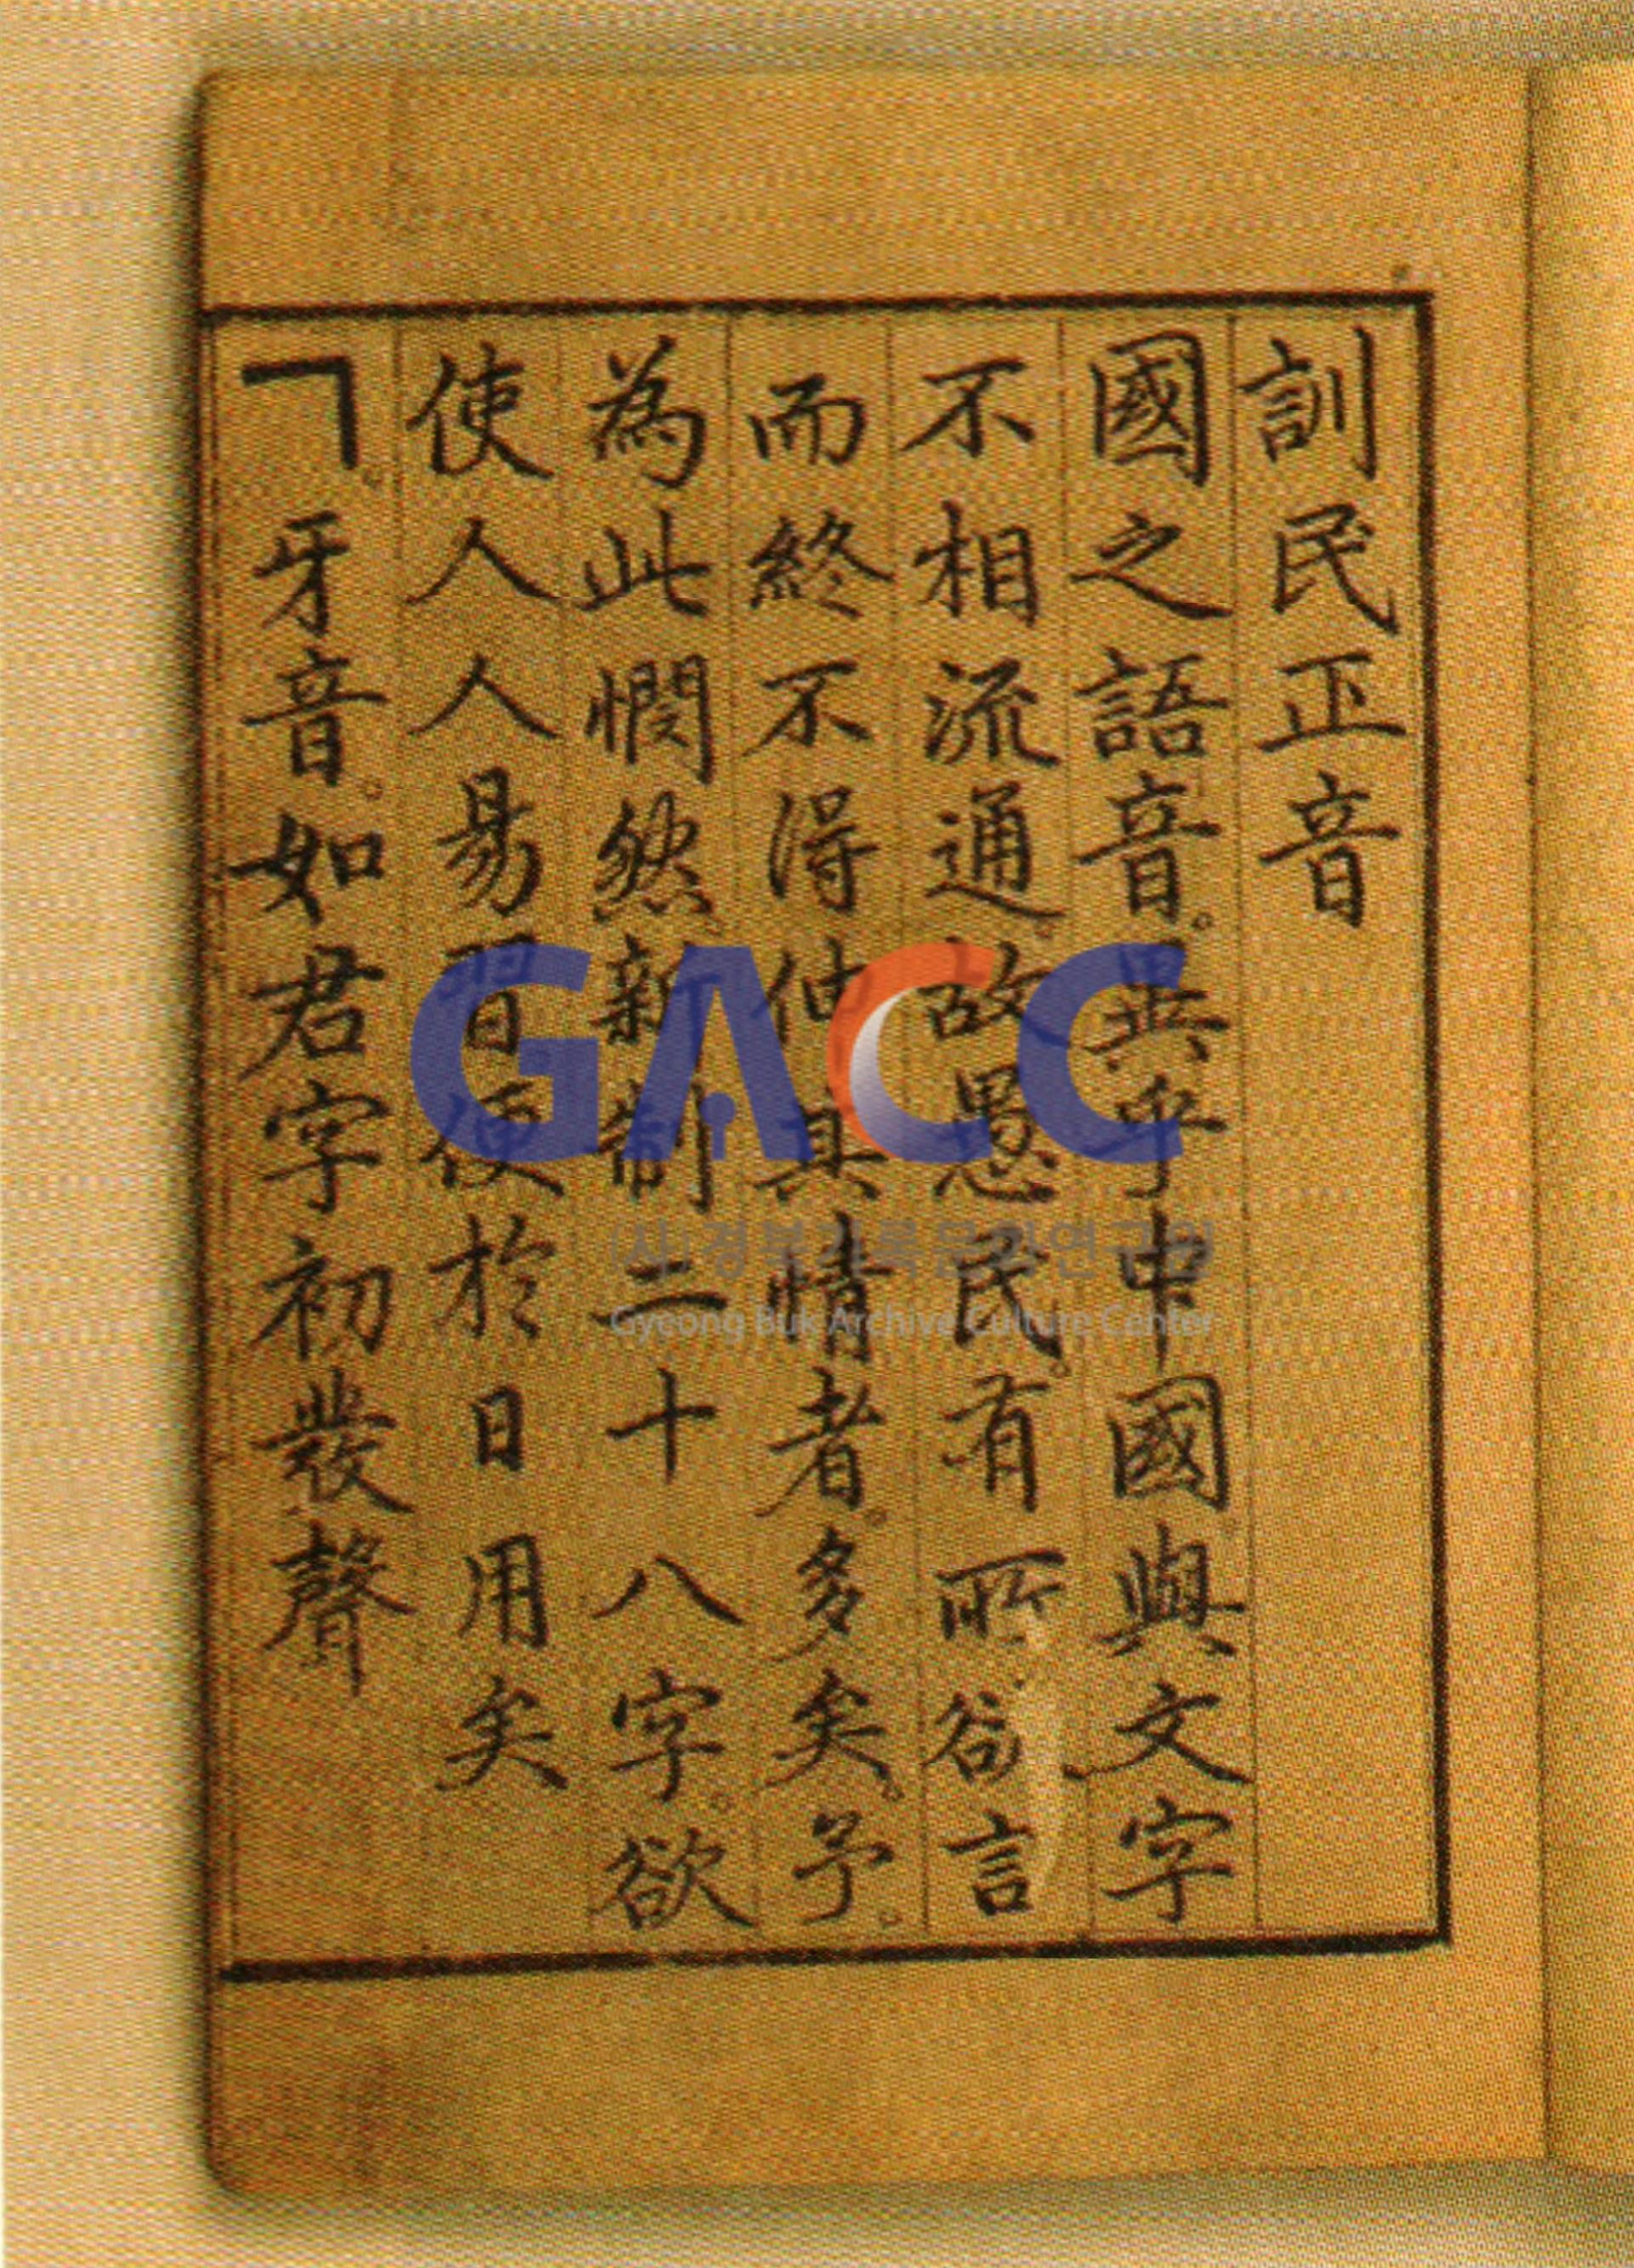 訓民正音
國之語音。異乎中國與文字
不相流通。故愚民。有所欲言
而終不得伸其情者。多矣。予。
為此憫然。新制二十八字。欲
使人人易習便於日用矣
ㄱ。牙音。如君字初發聲
GACC
(사)경북기록문화연구원
Gyeong Buk Archive Culture Center